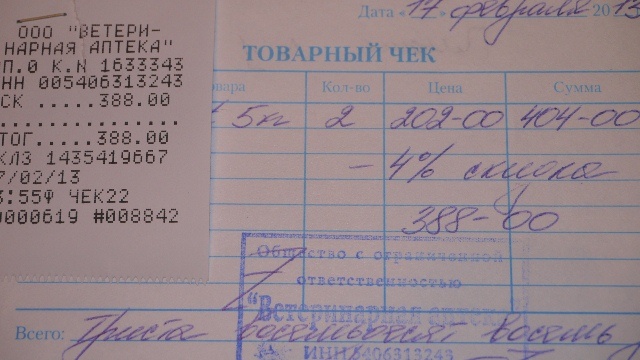 ООО "ВЕТЕРИ-
НАРНАЯ АПТЕКА"
П.0 К.N 1633343
НН 005406313243
СК .....388.00
ТОГ.....388.00
КЛЗ 1435419667
7/02/13
3:55Ф ЧЕК22
0000619 #008842
Дата «17 февраля 2013
ТОВАРНЫЙ ЧЕК
вара Кол-во Цена Сумма
5кг 2 202-00 404-00
- 4% скидка
388-00
Общество с ограниченной
ответственностью
"Ветеринарная аптека
Всего: Триста восемьдесят восемь
ИНН 5406313243